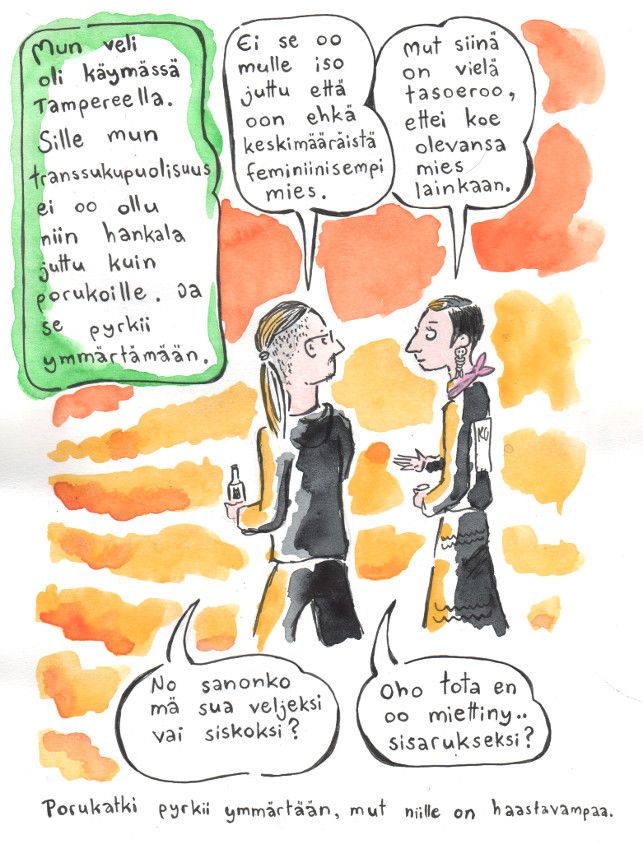 Mun veli
oli käymässä
Tampereella.
Sille mun
transsukupuolisuus
ei oo ollu
niin hankala
juttu kuin
porukoille. Ja
se pyrkii
ymmärtämään.
Ei se oo
mulle iso
juttu että
oon ehkä
keskimääräistä
feminiinisempi
mies.
Mut siinä
on vielä
tasoeroo,
ettei koe
olevansa
mies
lainkaan.
No sanonko
mä sua veljeksi
vai siskoksi?
Oho tota en
oo miettiny..
sisarukseksi?
Porukatki pyrkii ymmärtään, mut niille on haastavampaa.